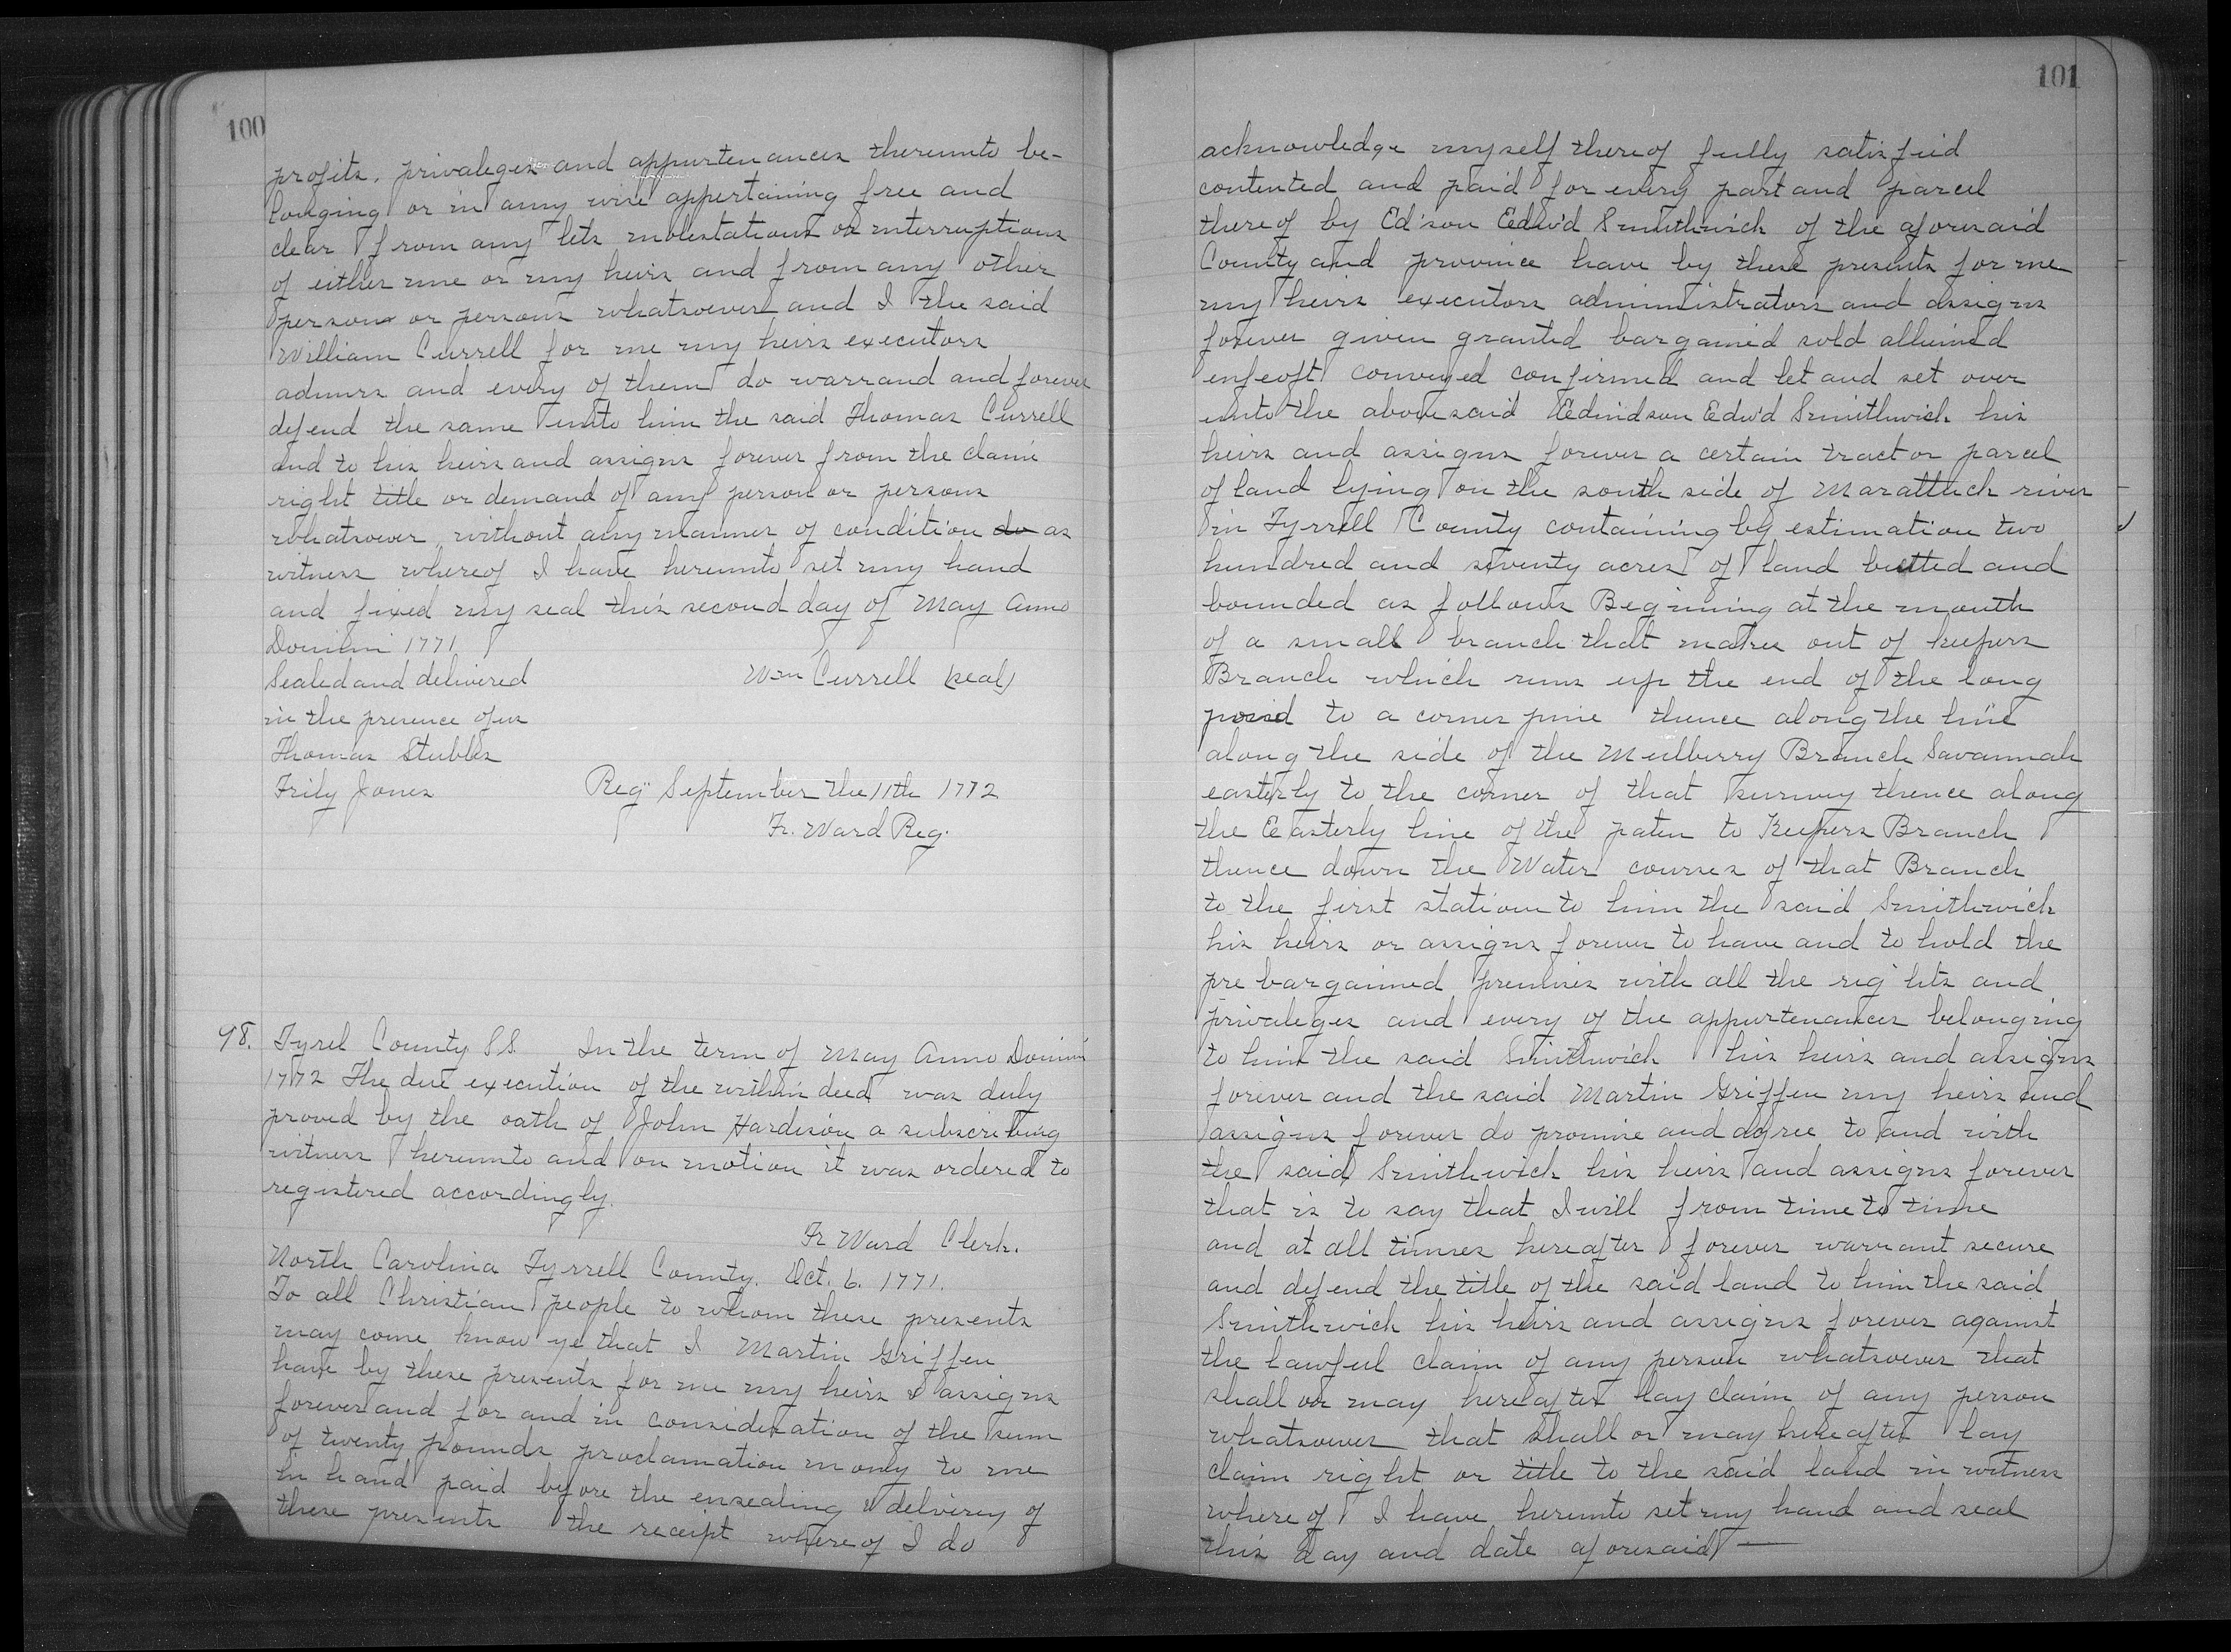 100
profits, privaleges and appurtenances thereunto be-
longing or in anny wise appertaining free and
clear from any lets molestations or interruptions
of either me or my heirs and from any other
person or persons whatsoever and I the said
William Currell for me my heirs executors
admurs and every of them do warrand and forever
defend the same unto him the said Thomas Currell
and to his heirs and assigns forever from the claim
right title or demand of any person or persons
whatsoever, without any manner of condition do as
witness whereof I have hereunto set my hand
and fixed my seal this second day of May Anno
Domini 1771
Sealed and delivered Wm Currell (seal)
in the presence of us
Thomas Stubbs
Frily Jones Reg September the 11th 1772
Fr. Ward Reg.
98. Tyrel County SS. In the term of May Anno Domini
1772 The due execution of the within deed was duly
proved by the oath of John Hardison a subscribing
witness hereunto and on motion it was ordered to
registered accordingly.
Fr Ward Clerk.
North Carolina Tyrrell County. Oct. 6. 1771.
To all Christian people to whom these presents
may come know ye that I Martin Griffen
have by these presents for me my heirs & assigns
forever and for and in consideration of the sum
of twenty pounds proclamation mony to me
in hand paid before the ensealing & delivery of
these presents the receipt whereof I do
101
acknowledge myself thereof fully satisfied
contented and paid for every part and parcel
thereof by Ed'son Edw'd Smithwich of the aforesaid
County and province have by these presents for me
my heirs executors administrators and assigns
forever given granted bargained sold alliened
enfeoft conveyed confirmed and let and set over
unto the above said Edmidson Edw'd Smithwich his
heirs and assigns forever a certain tract or parcel
of land lying on the south side of Marattuck river
in Tyrrell County containing by estimation two
hundred and seventy acres of land butted and
bounded as follows Beginning at the mouth
of a small branch that makes out of keepers
Branch which runs up the end of the long
pond to a corner pine thence along the line
along the side of the Mulberry Branch Savannah
easterly to the corner of that survey thence along
the Easterly line of the paten to Keepers Branch
thence down the Water courses of that Branch
to the first station to him the said Smithwich
his heirs or assigns forever to have and to hold the
pre bargained premises with all the rights and
privaleges and every of the appurtenances belonging
to him the said Smithwich his heirs and assigns
forever and the said Martin Griffen my heirs and
assigns forever do promise and agree to and with
the said Smithwich his heirs and assigns forever
that is to say that I will from time to time
and at all times hereafter forever warrant secure
and defend the title of the said land to him the said
Smithwich his heirs and assigns forever against
the lawful claim of any person whatsoever that
shall or may hereafter lay claim of any person
whatsoever that shall or may hereafter lay
claim right or title to the said land in witness
whereof I have hereunto set my hand and seal
this day and date aforesaid —